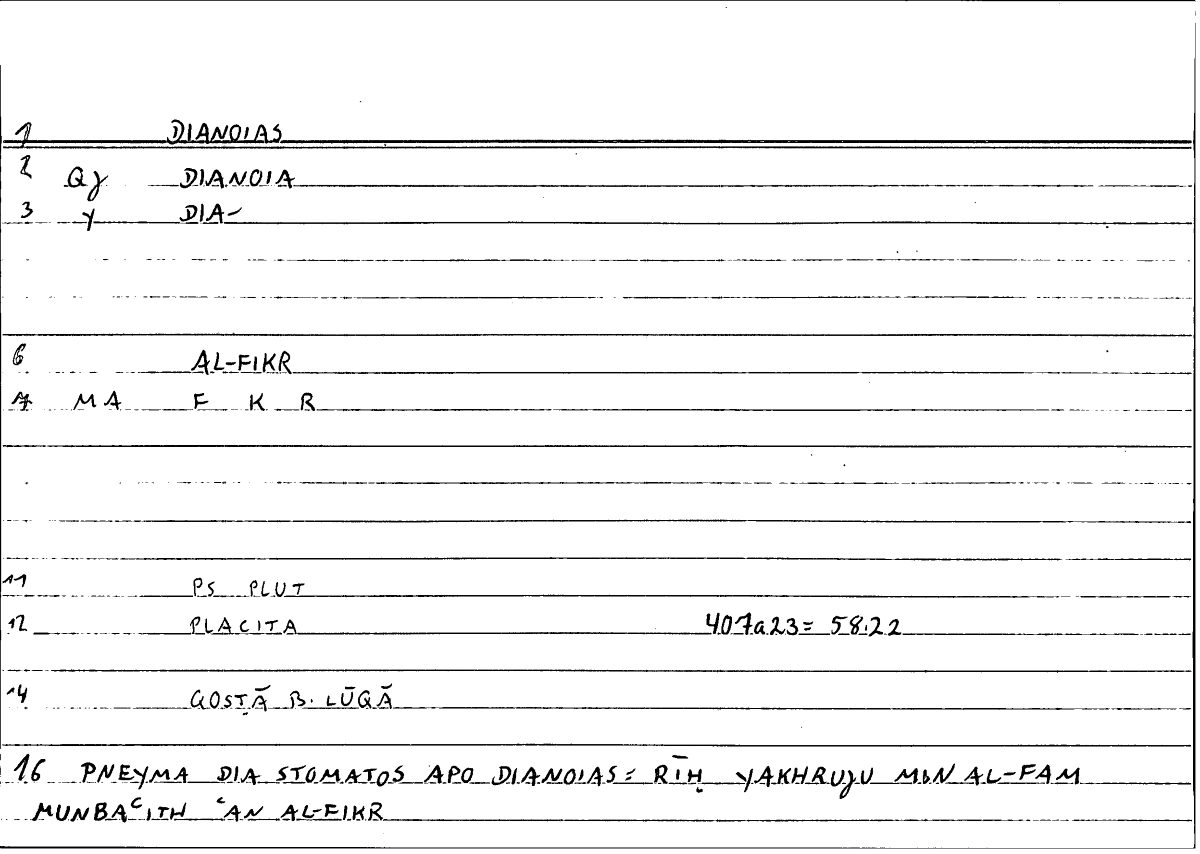 1 DIANOIAS
2 Qy DIANOIA
3 y DIA-
6 AL-FIKR
7 MA F K R
11 PS PLUT
12 PLACITA 407a23= 58.22
14 QOSṬĀ B. LŪQĀ
16 PNEYMA DIA STOMATOS APO DIANOIAS = RĪḤ YAKHRUJU MIN AL-FAM
MUNBAʿITH ʿAN AL-FIKR